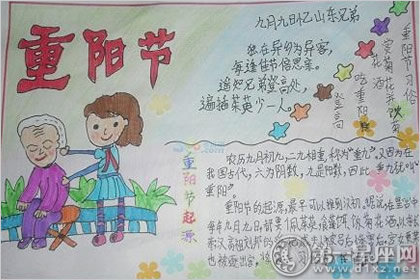 重阳节
九月九日忆山东兄弟
独在异乡为异客,
每逢佳节倍思亲。
遥知兄弟登高处,
遍插茱萸少一人。
重阳节习俗
赏菊花
登高
吃重阳糕
重阳节起源
农历九月初九,二九相重,称为"重九",又因为在
我国古代,六为阴数,九是阳数,因此,重九就叫
"重阳"。
重阳节的起源,最早可以推到汉初,据说
每年九月九日,都要
汉高祖刘邦的
也被逐出宫
第一星座网